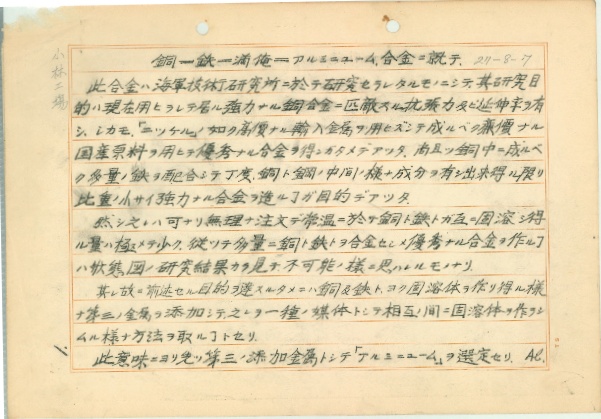 小林工場
銅一鉄一満俺一アルミニューム合金ニ就テ. 27-8-7
此合金ハ海軍技術研究所ニ於テ研究セラレタルモノニシテ、其研究目
的ハ現在用ヒラレテ居ル強力ナル銅合金ニ匹敵スル抗張力及ビ延伸率ヲ有
シ、シカモ、「ニッケル」ノ如ク高價ナル輸入金属ヲ用ヒズシテ成ルベク廉價ナル
国産原料ヲ用ヒテ優秀ナル合金ヲ得ンガタメデアッタ. 尚且ツ銅中ニ成ルベ
ク多量ノ鉄ヲ配合シテ丁度銅ト鋼ノ中間ノ様ナ成分ヲ有シ出来得ル限リ
比重ノ小サイ強力ナル合金ヲ造ルヿガ目的デアッタ.
然シ之レハ可ナリ無理ナ注文デ常温ニ於テ銅ト鉄トガ互ニ固溶シ得
ル量ハ極メテ少ク、従ツテ多量ニ銅ト鉄トヲ合金セシメ優秀ナル合金ヲ作ルヿ
ハ状態図ノ研究結果カラ見テ不可能ノ様ニ思ハレルモノナリ.
其レ故ニ前述セル目的ヲ達スルタメニハ銅及鉄トヨク固溶体ヲ作リ得ル様
ナ第三ノ金属ヲ添加シテ之レヲ一種ノ媒体トシテ相互ノ間ニ固溶体ヲ作ラシ
ムル様ナ方法ヲ取ルヿトセリ.
此意味ニヨリ先ヅ第三ノ添加金属トシテ「アルミニューム」ヲ選定セリ. Al.
1.